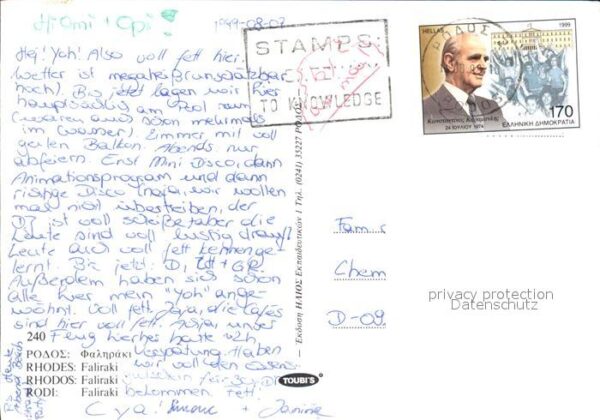 Hi Omi + Opi!
1999-08-07
Hey! Yoh! Also voll fett hier.
Wetter ist megaheiß (runterkratzbar
noch). Bis jetzt lagen wir hier
hauptsächlich am Pool rum
(waren auch schon mehrmals
im Wasser). Zimmer mit voll
geilen Balkon. Abends nur
abfeiern. Erst Mini Disco, dann
Animationsprogram und dann
richtige Disco (naja, wir wollen
mal nicht übertreiben, der
DJ ist voll scheiße) aber die
Leute sind voll lustig drauf!
Leute auch voll fett kennenge-
lernt. Bis jetzt: D, + GR.
Außerdem haben sich schon
alle hier mein "Yoh" ange-
wöhnt. Voll fett. Jaja, die Cafés
sind hier voll fett. Achja, unser
Flug hatte
Verspätung. Haben
wir voll den Essens-
gutschein für
bekommen. Fett!
Cya! Simone + Janine
PS: Heute
Beach
Party
STAMPS:
TO KNOWLEDGE
ΡΟΔΟΣ
HELLAS
1999
Κωνσταντίνος Καραμανλής
24 ΙΟΥΛΙΟΥ 1974
170
ΕΛΛΗΝΙΚΗ ΔΗΜΟΚΡΑΤΙΑ
Έκδοση ΗΛΙΟΣ Εκπαιδευτικών 1 Τηλ. (0241) 35227 ΡΟΔΟΣ
Fam
Chem
D-09
privacy protection
Datenschutz
240
ΡΟΔΟΣ: Φαληράκι
RHODES: Faliraki
RHODOS: Faliraki
RODI: Faliraki
TOUBI'S